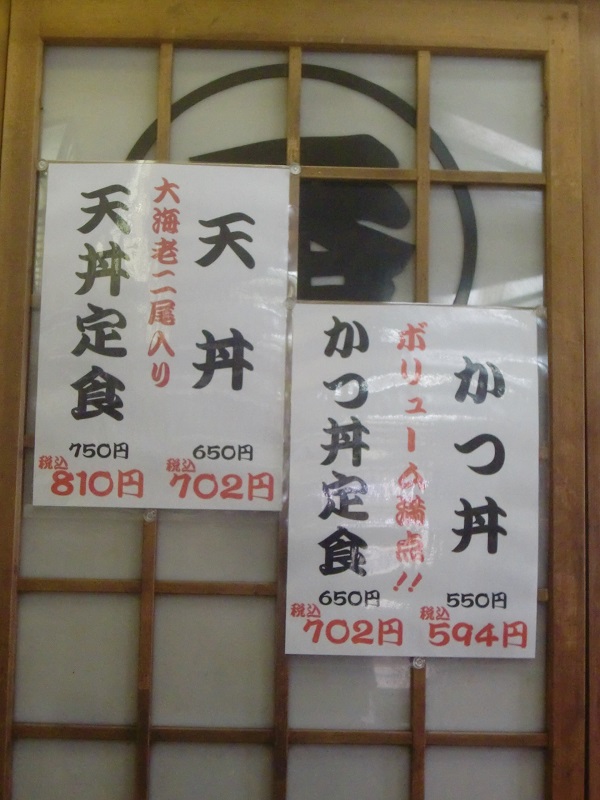 天丼
大海老二尾入り
天丼定食
650円
税込
702円
750円
税込
810円
かつ丼
ボリューム満点!!
かつ丼定食
550円
税込
594円
650円
税込
702円